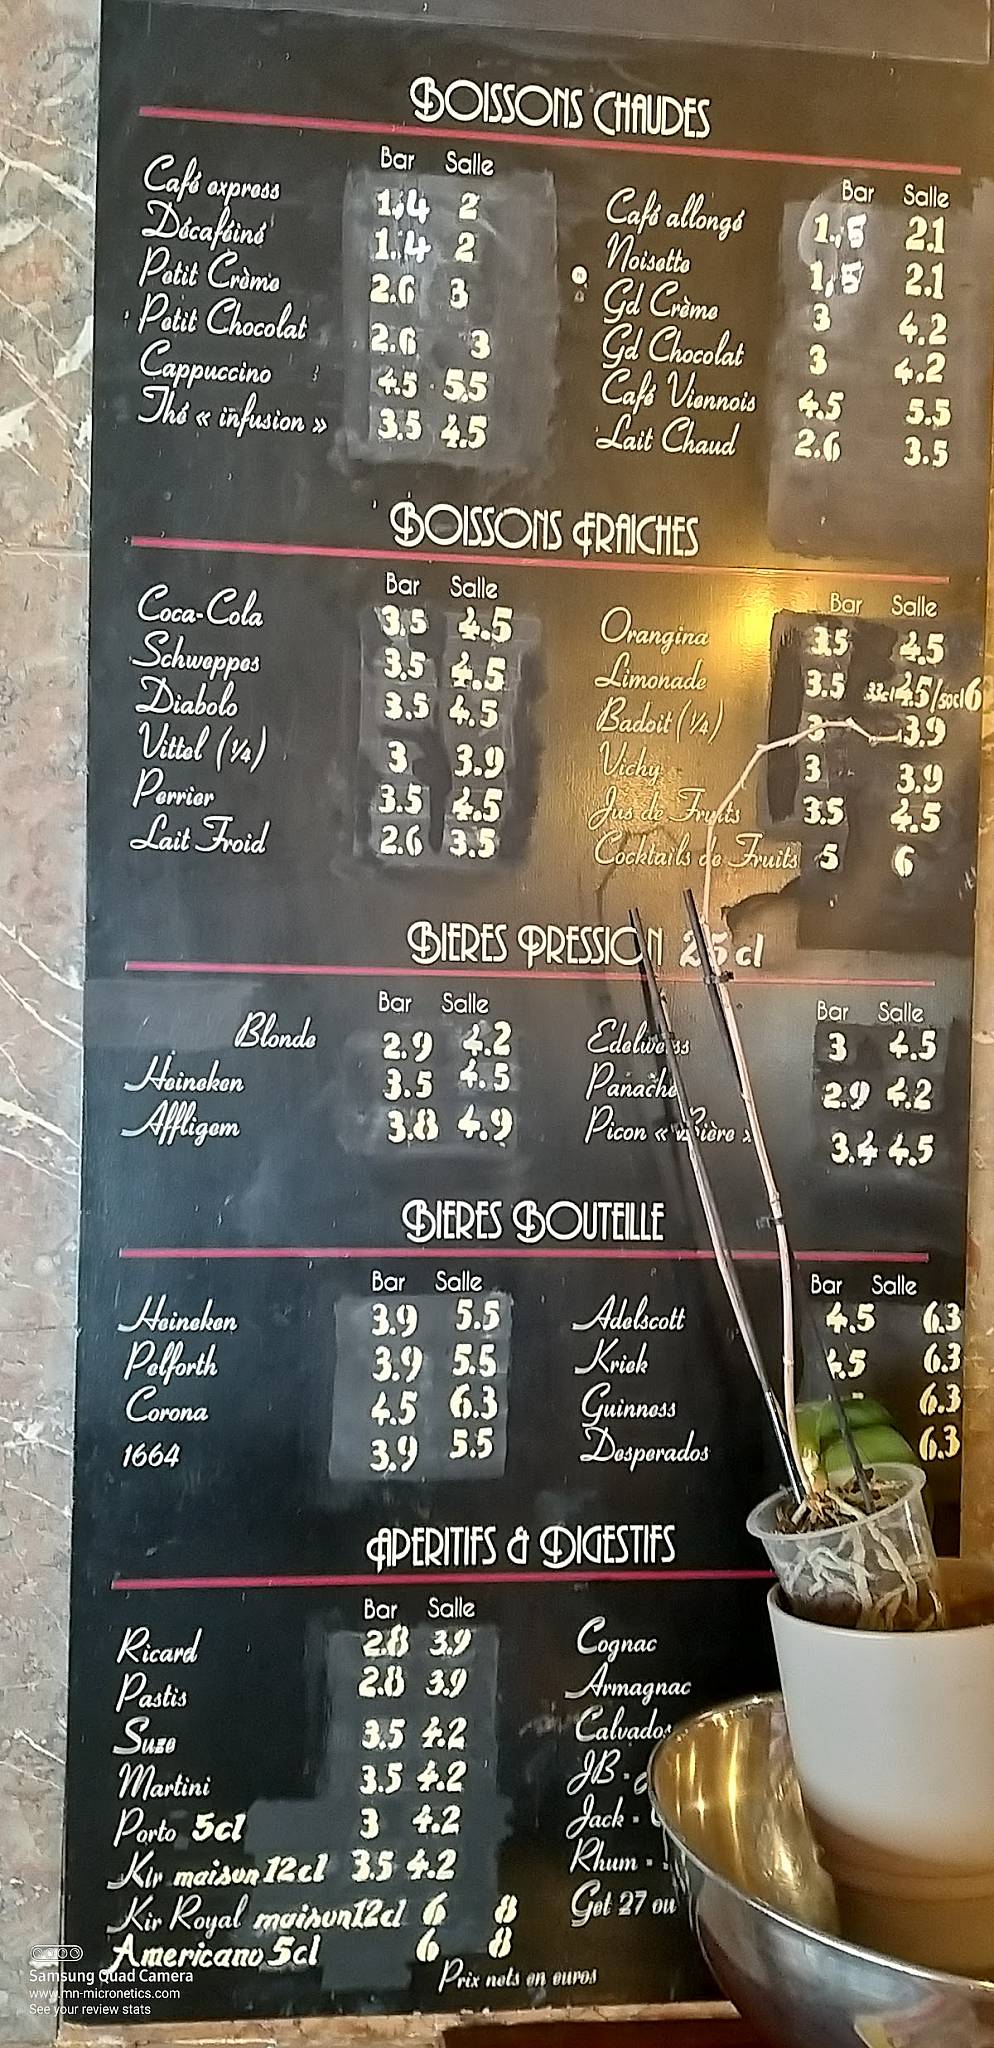 BOISSONS CHAUDES
Bar Salle
Café express 1,4 2
Décaféiné 1.4 2
Petit Crème 2.6 3
Petit Chocolat 2.6 3
Cappuccino 4.5 5.5
Thé « infusion » 3.5 4.5
Bar Salle
Café allongé 1,5 2.1
Noisette 1,5 2.1
Gd Crème 3 4.2
Gd Chocolat 3 4.2
Café Viennois 4.5 5.5
Lait Chaud 2.6 3.5
BOISSONS FRAICHES
Bar Salle
Coca-Cola 3.5 4.5
Schweppes 3.5 4.5
Diabolo 3.5 4.5
Vittel (1/4) 3 3.9
Perrier 3.5 4.5
Lait Froid 2.6 3.5
Bar Salle
Orangina 3.5 4.5
Limonade 3.5 33cl 4.5/50cl 6
Badoit (1/4) 3 3.9
Vichy 3 3.9
Jus de Fruits 3.5 4.5
Cocktails de Fruits 5 6
BIERES PRESSION 25 cl
Bar Salle
Blonde 2.9 4.2
Heineken 3.5 4.5
Affligem 3.8 4.9
Bar Salle
Edelweiss 3 4.5
Panaché 2.9 4.2
Picon « Bière » 3.4 4.5
BIERES BOUTEILLE
Bar Salle
Heineken 3.9 5.5
Pelforth 3.9 5.5
Corona 4.5 6.3
1664 3.9 5.5
Bar Salle
Adelscott 4.5 6.3
Kriek 4.5 6.3
Guinness 6.3
Desperados 6.3
APERITIFS & DIGESTIFS
Bar Salle
Ricard 2.8 3.9
Pastis 2.8 3.9
Suze 3.5 4.2
Martini 3.5 4.2
Porto 5cl 3 4.2
Kir maison 12cl 3.5 4.2
Kir Royal maison 12cl 6 8
Americano 5cl 6 8
Cognac
Armagnac
Calvados
JB -
Jack -
Rhum -
Get 27 ou
Prix nets en euros
Samsung Quad Camera
www.mn-micronetics.com
See your review stats